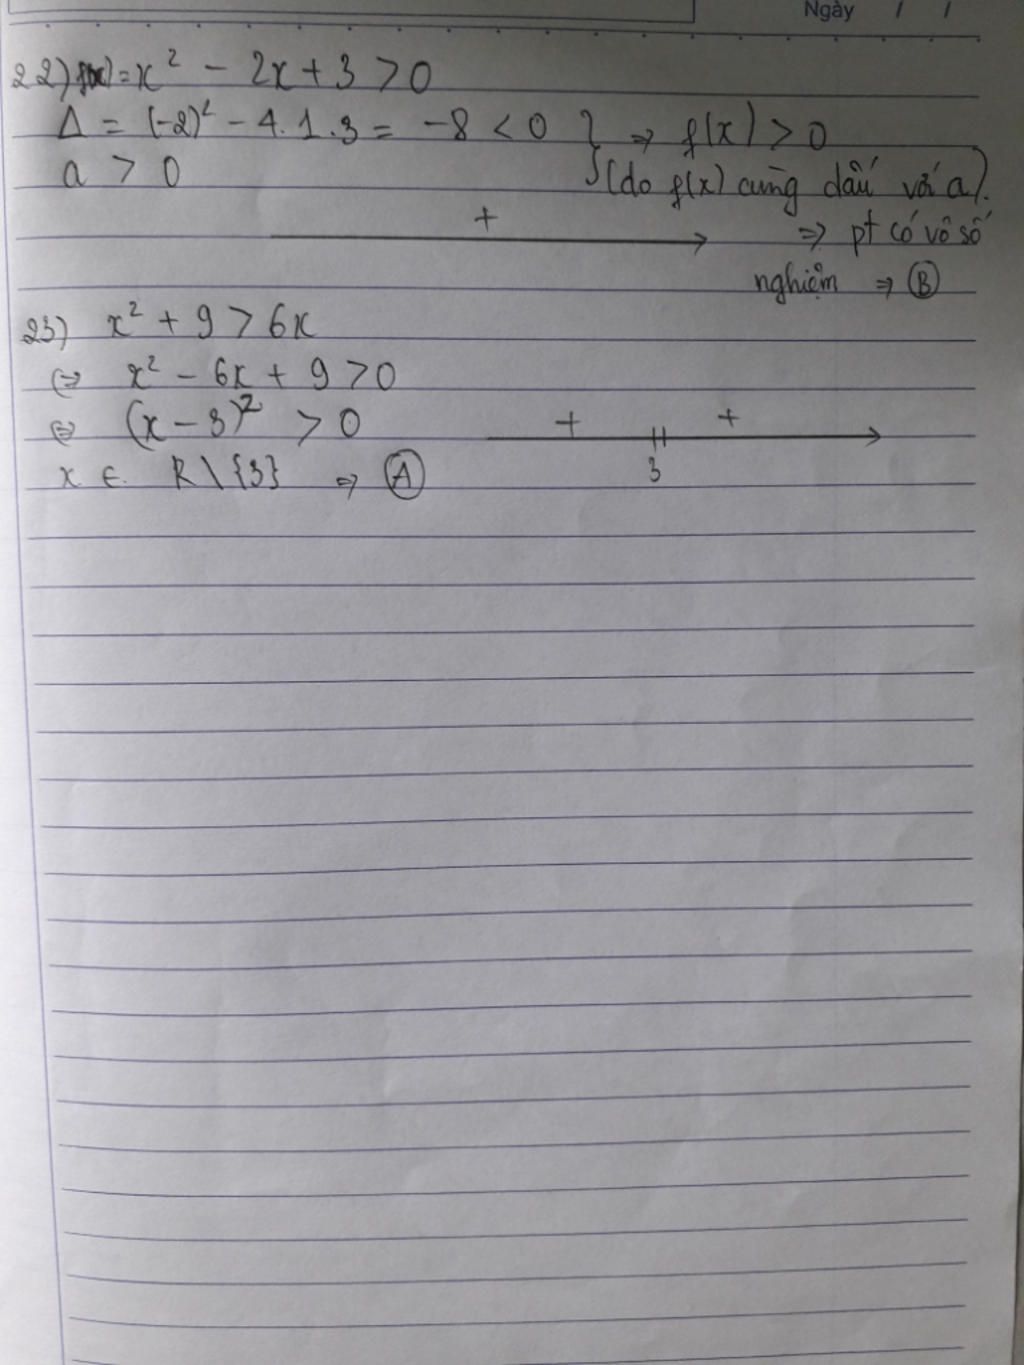 Ngày / /
22) f(x) = x² - 2x + 3 > 0
Δ = (-2)² - 4.1.3 = -8 < 0 } ⇒ f(x) > 0
a > 0 (do f(x) cùng dấu với a).
+ ⇒ pt có vô số
nghiệm ⇒ Ⓑ
23) x² + 9 > 6x
⇔ x² - 6x + 9 > 0
⇔ (x - 3)² > 0 + +
3
x ∈ R \ {3} ⇒ Ⓐ